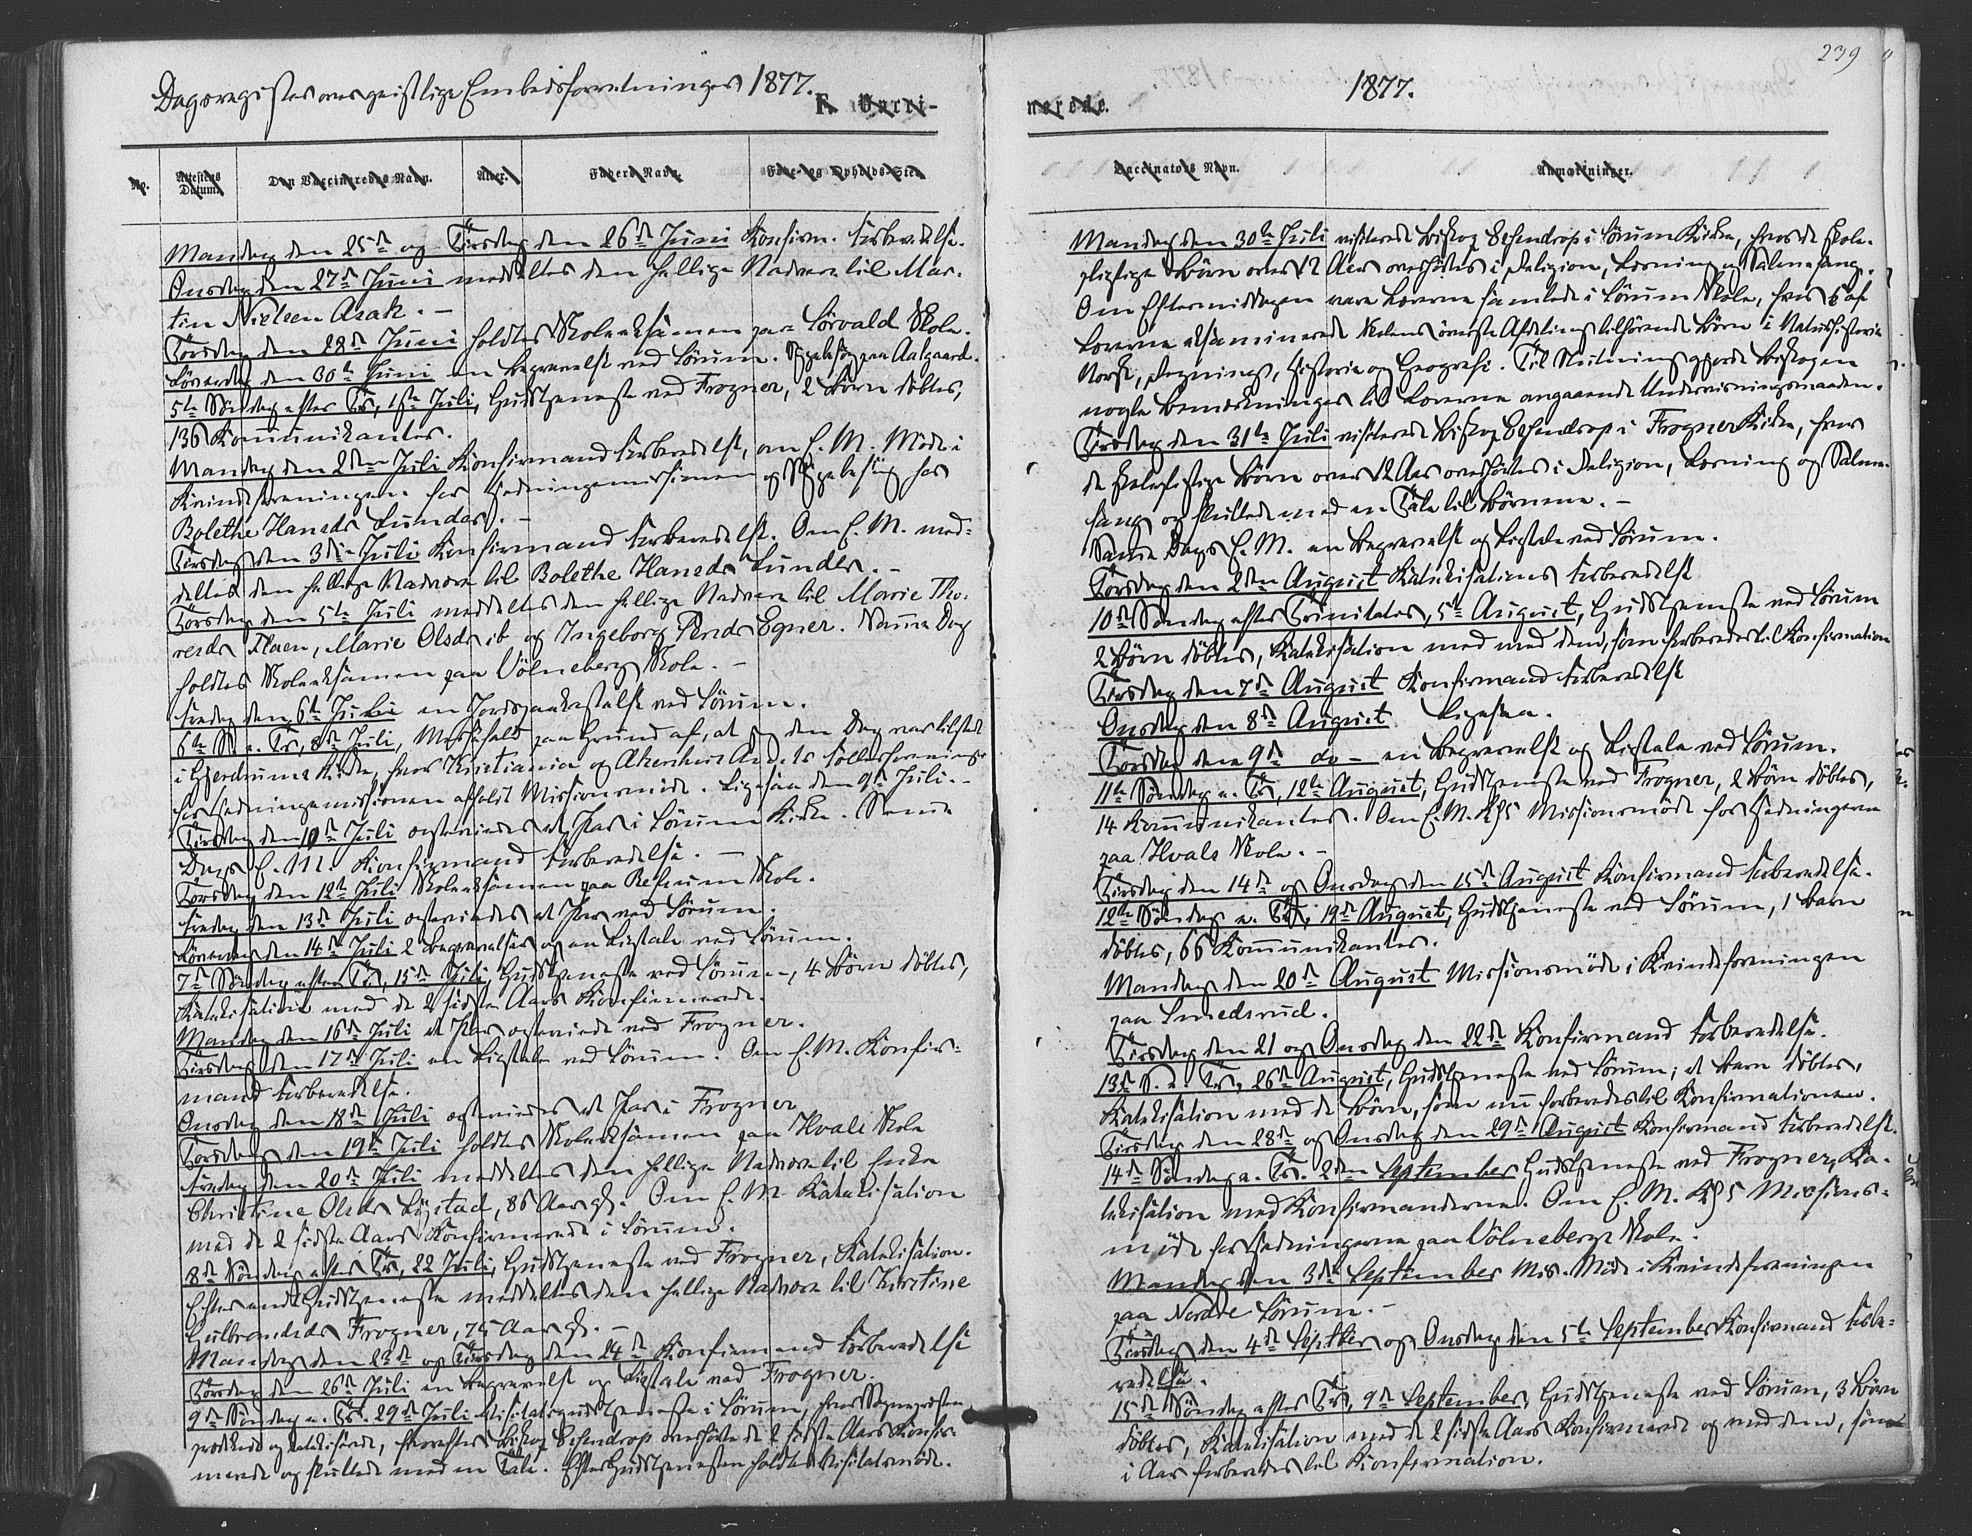 Dagsregister over geistlige Embedsforretninger 1877.
F. Vacci-
No.
Attestens Datum.
Den Vaccineredes Navn.
Alder.
Faders Navn.
Føde- og Opholds-Sted
Mandag den 25de og Tirsdag den 26de Juni Konfirm. Forberedelse.
Onsdag den 27de Juni meddeltes den hellige Nadvere til Mar-
tin Nielsen Asak. –
Torsdag den 28de Juni holdtes Skoleeksamen paa Sörvald Skole.
Löverdag den 30te Juni en Begravelse ved Sörum. Sygebesög paa Aalgaard.
5te Söndag efter Tr, 1ste Juli, Gudstjeneste ved Frogner, 2 Börn döbtes,
136 Kommunikanter.
Mandag den 2den Juli Konfirmand Forberedelse, om E. M. Möde i
Kvindeforeningen for Hedningemissionen og Sygebesög hos
Bolethe Hansdr Lunder. –
Tirsdag den 3die Juli Konfirmand Forberedelse. Om E. M. med-
deltes den hellige Nadvere til Bolethe Hansdr Lunder. –
Torsdag den 5te Juli meddeltes den hellige Nadvere til Marie Tho-
resdr Flaen, Marie Olsdr ib og Ingeborg Egner. Samme Dag
holdtes Skoleeksamen paa Völneberg Skole. –
Fredag den 6te Juli en Jordspaakastelse ved Sörum.
6te S. e. Tr, 8de Juli, Messefald paa Grund af, at den Dag var tilstede
i Gjerdrums Kirke, hvor Kristiania og Akershus Amts Fællesforening
for Hedningemissionen afholdt Missionsmöde. Ligesaa den 9de Juli. –
Tirsdag den 10de Juli egteviedes et Par i Sörum Kirke. Samme
Dags E. M. Konfirmand Forberedelse. –
Torsdag den 12te Juli Skoleeksamen paa Refsum Skole.
Fredag den 13de Juli egteviedes et Par ved Sörum.
Löverdag den 14de Juli 2 Begravelser og en Ligtale ved Sörum.
7de Söndag efter Tr, 15de Juli, Gudstjeneste ved Sörum, 4 Börn döbtes,
Katekisation med de 2 sidste Aars Konfirmerede.
Mandag den 16de Juli et Par egteviede ved Frogner.
Tirsdag den 17de Juli en Ligtale ved Sörum. Om E. M. Konfir-
mand Forberedelse.
Onsdag den 18de Juli egteviedes et Par i Frogner
Torsdag den 19de Juli holdtes Skoleeksamen paa Hvals Skole
Fredag den 20de Juli meddeltes den hellige Nadvere til Enke
Christine Olsdr Löstad, 86 Aar gl. Om E. M. Katekisation
med de 2 sidste Aars Konfirmerede i Sörum.
8de Söndag efter Tr, 22 Juli, Gudstjeneste ved Frogner, Katekisation.
Efter endt Gudstjeneste meddeltes den hellige Nadvere til Kirstine
Gulbrandsdr Frogner, 75 Aar gl. –
Mandag den 23de og Tirsdag den 24de Konfirmand Forberedelse
Torsdag den 26de Juli en Begravelse og Ligtale ved Frogner.
9de Söndag e. Tr. 29de Juli Visitatsgudstjeneste i Sörum, hvor Sognepresten
prædikede og katekiserede, hvorefter Biskop Essendrop overhörte de 2 sidste Aars Konfir-
merede og sluttede med en Tale. Efter Gudstjenesten holdtes Visitatsmöde.
239
1877.
nerede.
Vaccinators Navn.
Anmærkninger.
Mandag den 30te Juli visiterede Biskop Essendrop i Sörum Kirke, hvor de skole-
pligtige Börn over 12 Aar overhörtes i Religion, Læsning og Salmesang.
Om Eftermiddagen vare Lærerne samlede i Sörum Skole, hvor 5 af
Lærerne eksaminerede Skolens överste Afdeling tilhörende Börn i Naturhistorie
Norsk, Regning, Historie og Geografi. Til Slutning gjorde Biskopen
nogle Bemerkninger til Lærerne angaaende Undervisningsmaaden.
Tirsdag den 31te Juli visiterede Biskop Essendrop i Frogner Kirke, hvor
de skolepligtige Börn over 12 Aar overhörtes i Religion, Læsning og Salme-
sang og sluttede med en Tale til Börnene. –
Samme Dags E. M. en Begravelse og Ligtale ved Sörum.
Torsdag den 2den August Katekisations Forberedelse
10de Söndag efter Trinitatis, 5te August, Gudstjeneste ved Sörum
2 Börn döbtes, Katekisation med med dem, som forberedes til Konfirmation
Tirsdag den 7de August Konfirmand Forberedelse
Onsdag den 8de August Ligesaa.
Torsdag den 9de do – en Begravelse og Ligtale ved Sörum.
11te Söndag e. Tr, 12te August, Gudstjeneste ved Frogner, 2 Börn döbtes,
14 Kommunikanter. Om E. M. Kl 5 Missionsmöde for Hedningerne
paa Hvals Skole. –
Tirsdag den 14de og Onsdag den 15de August Konfirmand Forberedelse.
12te Söndag e. Tr, 19de August, Gudstjeneste ved Sörum, 1 Barn
döbtes, 66 Kommunikanter.
Mandag den 20de August Missionsmöde i Kvindeforeningen
paa Smedsrud.
Tirsdag den 21 og Onsdag den 22de Konfirmand Forberedelse.
13de S. e. Tr, 26de August, Gudstjeneste ved Sörum; et Barn döbtes,
Katekisation med de Börn, som nu forberedes til Konfirmationen.
Tirsdag den 28de og Onsdag den 29de August Konfirmand Forberedelse.
14de Söndag e. Tr. 2den September Gudstjeneste ved Frogner, Ka-
tekisation med Konfirmanderne. Om E. M. Kl 5 Missions-
möde for Hedningerne paa Völneberg Skole.
Mandag den 3die September Mis. Möde i Kvindeforeningen
paa Nordre Sörum. –
Tirsdag den 4de Septber og Onsdag den 5te September Konfirmand Forbe-
redelse.
15de Söndag efter Tr, 9de September, Gudstjeneste ved Sörum, 3 Börn
döbtes, Katekisation med de 2 sidste Aars Konfirmerede og med dem, som
i Aar forberedes til Konfirmation.